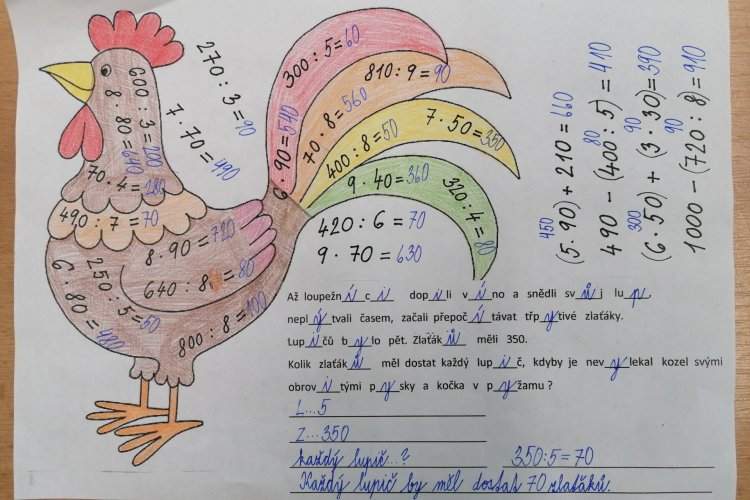 600 : 3 = 200
8 · 80 = 640
70 · 4 = 280
490 : 7 = 70
8 · 90 = 720
640 : 8 = 80
250 : 5 = 50
6 · 80 = 480
800 : 8 = 100
270 : 3 = 90
7 · 70 = 490
300 : 5 = 60
6 · 90 = 540
810 : 9 = 90
70 · 8 = 560
7 · 50 = 350
400 : 8 = 50
9 · 40 = 360
320 : 4 = 80
420 : 6 = 70
9 · 70 = 630
450
(5 · 90) + 210 = 660
80
490 − (400 : 5) = 410
300 90
(6 · 50) + (3 · 30) = 390
90
1000 − (720 : 8) = 910
Až loupežníci dopili víno a snědli svůj lup,
neplýtvali časem, začali přepočítávat třpytivé zlaťáky.
Lupičů bylo pět. Zlaťáků měli 350.
Kolik zlaťáků měl dostat každý lupič, kdyby je nevylekal kozel svými
obrovitými pysky a kočka v pyžamu?
L...5
Z...350
každý lupič...? 350:5=70
Každý lupič by měl dostat 70 zlaťáků.